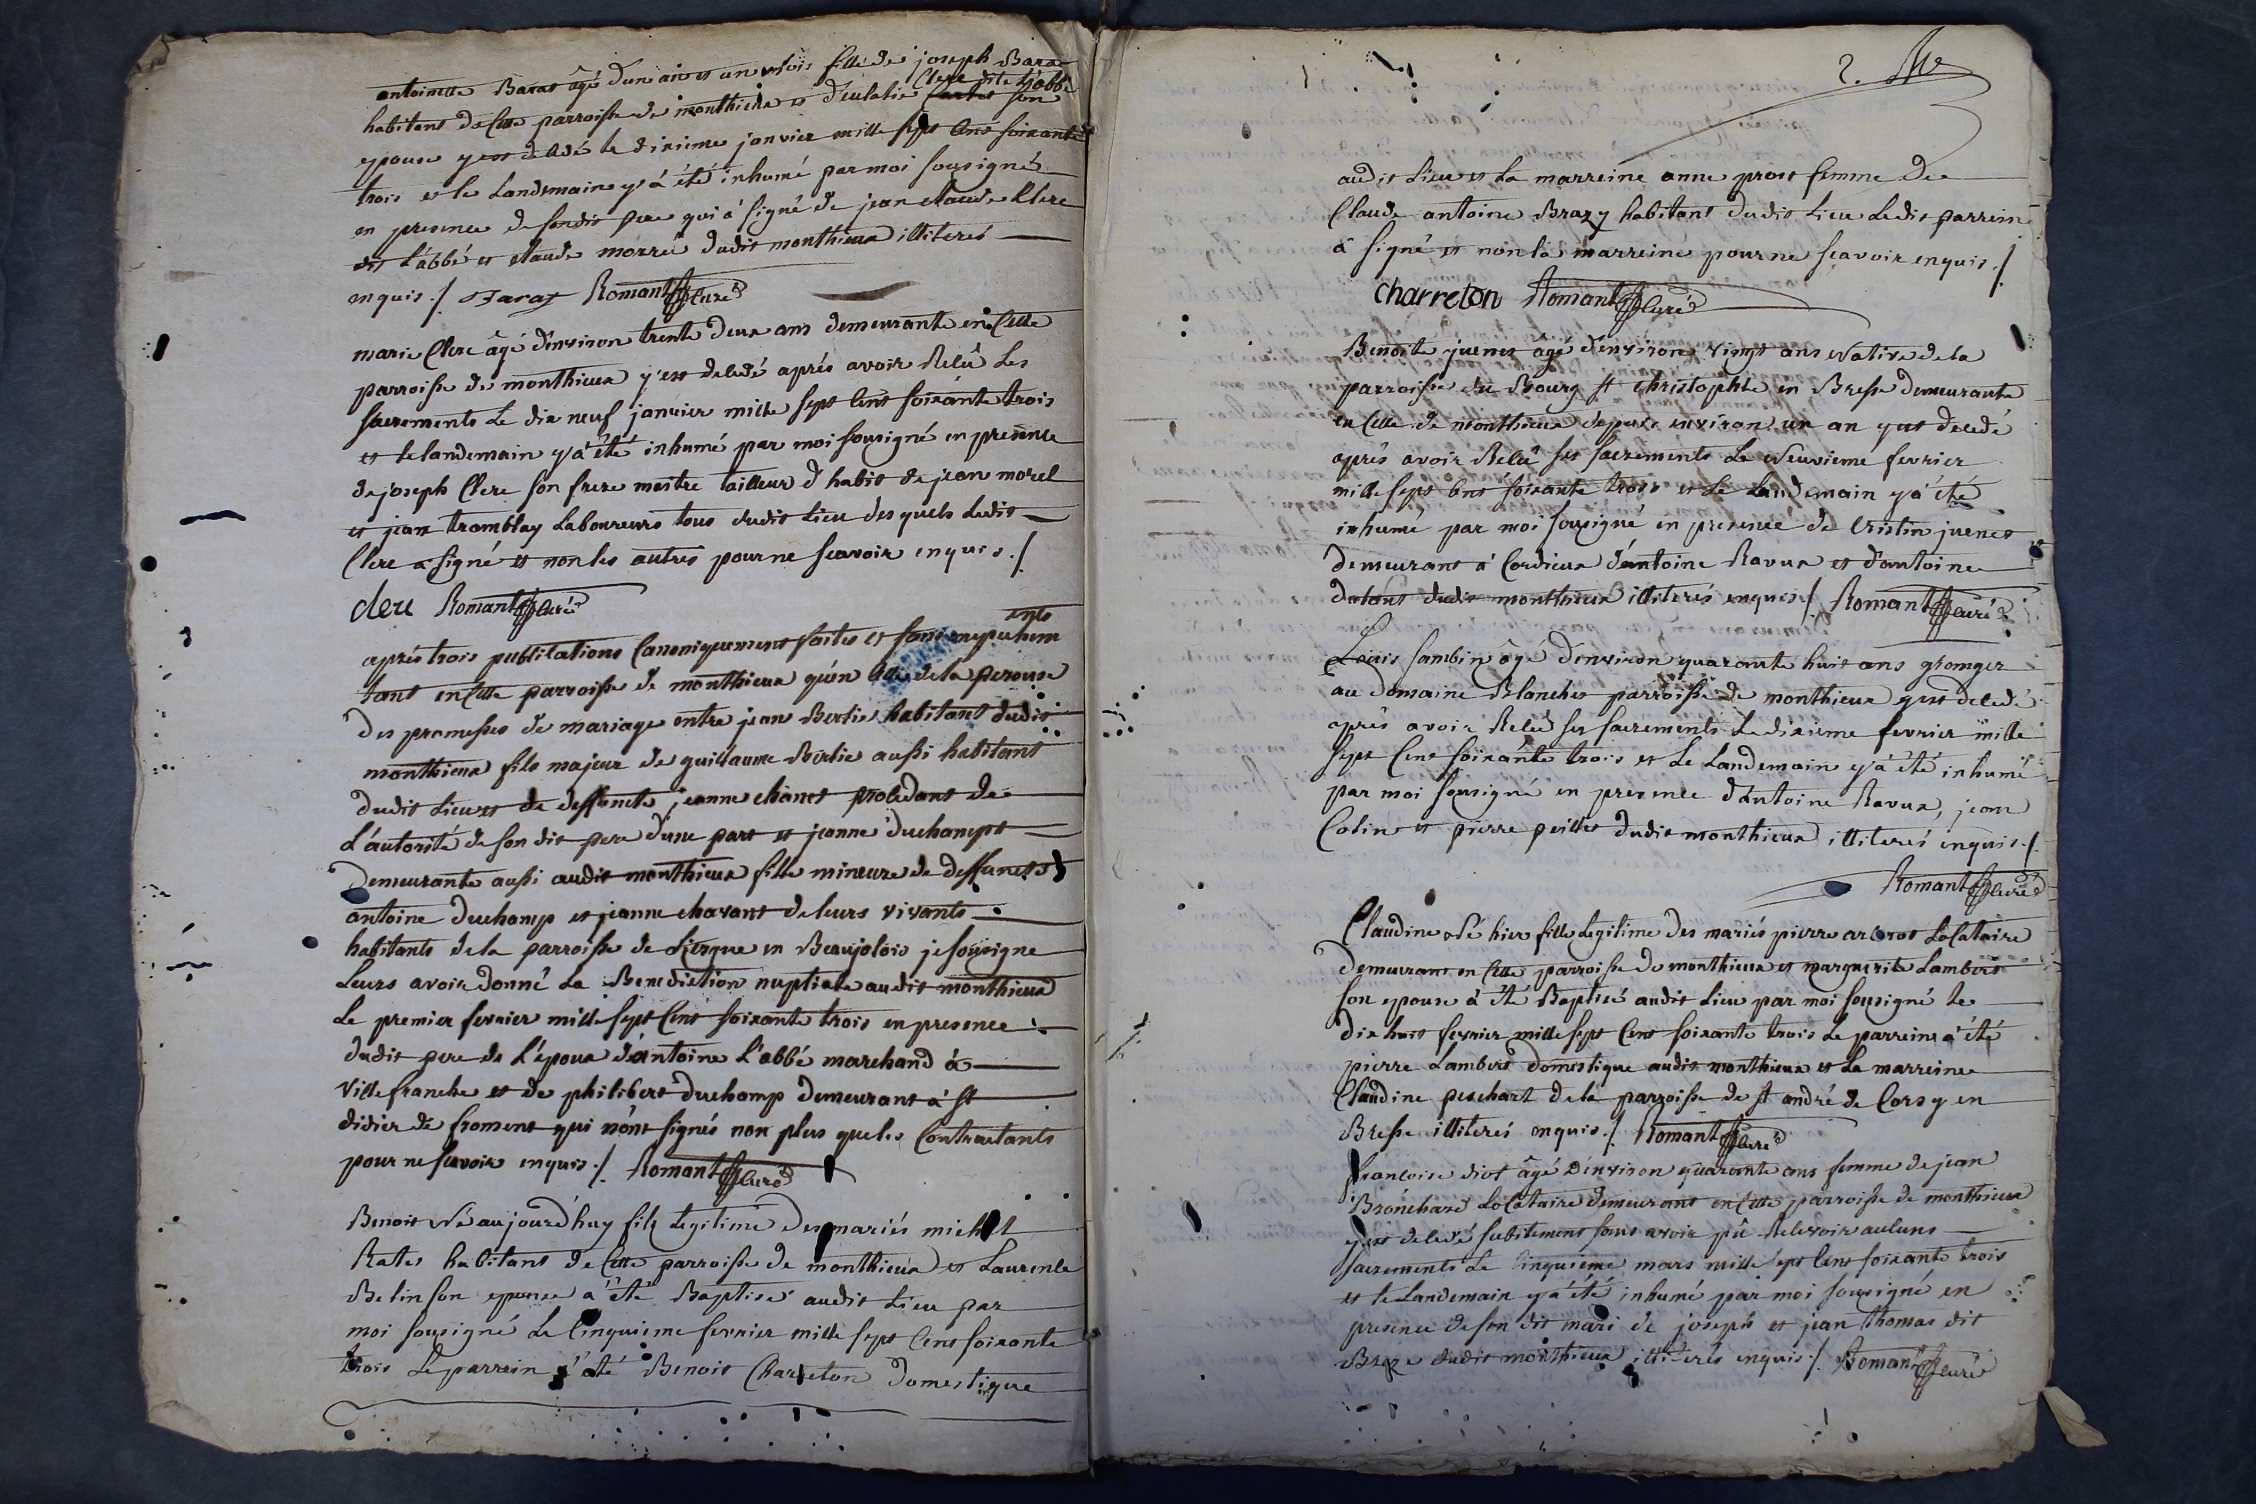 antoinette Barat âgé d'un an et un mois fille de joseph Bara
Clerc dite L'abbé
habitant de Cette parroisse de monthieux et d'eulalie son
epouse y est decedé le dixieme janvier mille sept Cent soixante
trois et le Landemain y a été inhumé par moi sousigné
en presence de sondit pere qui a signé de jean claude Clerc
dit L'abbé et claude morré dudit monthieux illiterés
enquis ./. Romant Curé
marie Clerc âgé d'environ trente deux ans demeurante en Cette
parroisse de monthieux y est decedé aprés avoir Recû Les
sacrements Le dix neuf janvier mille sept Cent soixante trois
et le landemain y a été inhumé par moi sousigné en presence
de joseph Clerc son frere maitre tailleur d'habit de jean morel
et jean tramblay Laboureurs tous dudit Lieu desquels Ledit
Clerc a signé et non les autres pour ne scavoir enquis ./.
clerc Romant Curé
aprés trois publications Canoniquement faites et sans empechement
tant en Cette parroisse de monthieux qu'en Celle de la perouse
des promesses de mariage entre jean Bertie habitant dudit
monthieux fils majeur de guillaume Bertie aussi habitant
dudit Lieu et de deffuncte jeanne chanet procedant de
L'autorité de son dit pere d'une part et jeanne duchampt
demeurante aussi audit monthieux fille mineure de deffuncts
antoine duchamp et jeanne chavant de leurs vivants
habitants de la parroisse de Liergue en Beaujolois je sousigne
Leurs avoir donné La Benediction nuptiale audit monthieux
Le premier fevrier mille sept Cent soixante trois en presence
dudit pere de L'epoux d'antoine L'abbé marchand à
Villefranche et de philibert duchamp demeurant à st
didier de froment qui n'ont signés non plus que les Contractants
pour ne scavoir enquis ./. Romant Curé
Benoit Né aujourd'huy fils Legitime des mariés michel
Rates habitant de Cette parroisse de monthieux et Laurence
Belin son epouse a été Baptisé audit Lieu par
moi sousigné Le Cinquieme fevrier mille sept Cent soixante
trois Le parrein a été Benoit Charreton domestique
2.
audit Lieu et La marreine anne prost femme de
Claude antoine Brazy habitant dudit Lieu Ledit parrein
a signé et non la marreine pour ne scavoir enquis ./.
charreton Romant Curé
Benoite juenet âgé d'environ vingt ans Native de la
parroisse du Bourg st christophle en Bresse demeurante
en Cette de monthieux depuis environ un an y est decedé
aprés avoir Recû ses sacrements Le Neuvieme fevrier
mille sept Cent soixante trois et Le Landemain y a été
inhumé par moi sousigné en presence de Cristin juenet
demeurant à Cordieux d'antoine Ravux et d'antoine
dudit monthieux illiterés enquis ./. Romant Curé
Louis sambin âgé d'environ quarante huit ans granger
au domaine Blanches parroisse de monthieux y est decedé
aprés avoir Recû ses sacrements Le dixieme fevrier mille
sept Cent soixante trois et Le Landemain y a été inhumé
par moi sousigné en presence d'antoine Ravux, jean
Colin et pierre peillet dudit monthieux illiterés enquis ./.
Romant Curé
Claudine Né hier fille Legitime des mariés pierre Locataire
demeurant en Cette parroisse de monthieux et marguerite Lambert
son epouse à été Baptisé audit Lieu par moi sousigné le
dix huit fevrier mille sept Cent soixante trois Le parrein a été
pierre Lambert domestique audit monthieux et La marreine
Claudine pechart de la parroisse de st andré de Corsy en
Bresse illiterés enquis ./. Romant Curé
francoise diot âgé d'environ quarante ans femme de jean
Bronchard Locataire demeurant en Cette parroisse de monthieux
y est decedé subitement sans avoir pû Recevoir aucuns
sacrements Le Cinquieme mars mille sept Cent soixante trois
et le Landemain y a été inhumé par moi sousigné en
presence de son dit mari de joseph et jean Thomas dit
dudit monthieux illiterés enquis ./. Romant Curé